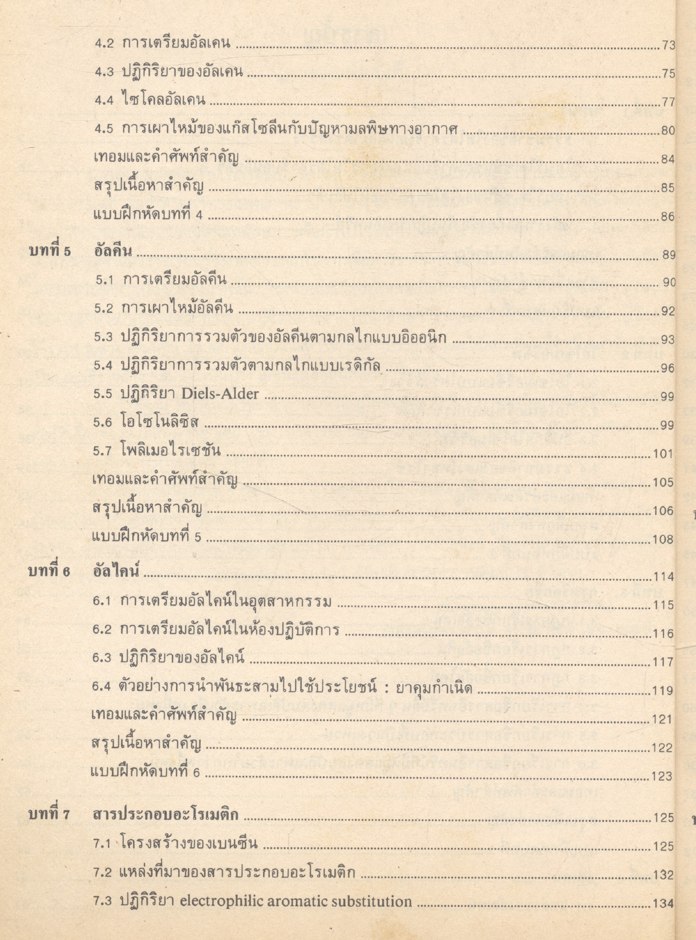 4.2 การเตรียมอัลเคน ........ 73
4.3 ปฏิกิริยาของอัลเคน ........ 75
4.4 ไซโคลอัลเคน ........ 77
4.5 การเผาไหม้ของแก๊สโซลีนกับปัญหามลพิษทางอากาศ ........ 80
เทอมและคำศัพท์สำคัญ ........ 84
สรุปเนื้อหาสำคัญ ........ 85
แบบฝึกหัดบทที่ 4 ........ 86
บทที่ 5 อัลคีน ........ 89
5.1 การเตรียมอัลคีน ........ 90
5.2 การเผาไหม้อัลคีน ........ 92
5.3 ปฏิกิริยาการรวมตัวของอัลคีนตามกลไกแบบอิออนิก ........ 93
5.4 ปฏิกิริยาการรวมตัวตามกลไกแบบเรดิกัล ........ 96
5.5 ปฏิกิริยา Diels-Alder ........ 99
5.6 โอโซโนลิซิส ........ 99
5.7 โพลิเมอไรเซชัน ........ 101
เทอมและคำศัพท์สำคัญ ........ 105
สรุปเนื้อหาสำคัญ ........ 106
แบบฝึกหัดบทที่ 5 ........ 108
บทที่ 6 อัลไคน์ ........ 114
6.1 การเตรียมอัลไคน์ในอุตสาหกรรม ........ 115
6.2 การเตรียมอัลไคน์ในห้องปฏิบัติการ ........ 116
6.3 ปฏิกิริยาของอัลไคน์ ........ 117
6.4 ตัวอย่างการนำพันธะสามไปใช้ประโยชน์ : ยาคุมกำเนิด ........ 119
เทอมและคำศัพท์สำคัญ ........ 121
สรุปเนื้อหาสำคัญ ........ 122
แบบฝึกหัดบทที่ 6 ........ 123
บทที่ 7 สารประกอบอะโรเมติก ........ 125
7.1 โครงสร้างของเบนซีน ........ 125
7.2 แหล่งที่มาของสารประกอบอะโรเมติก ........ 132
7.3 ปฏิกิริยา electrophilic aromatic substitution ........ 134